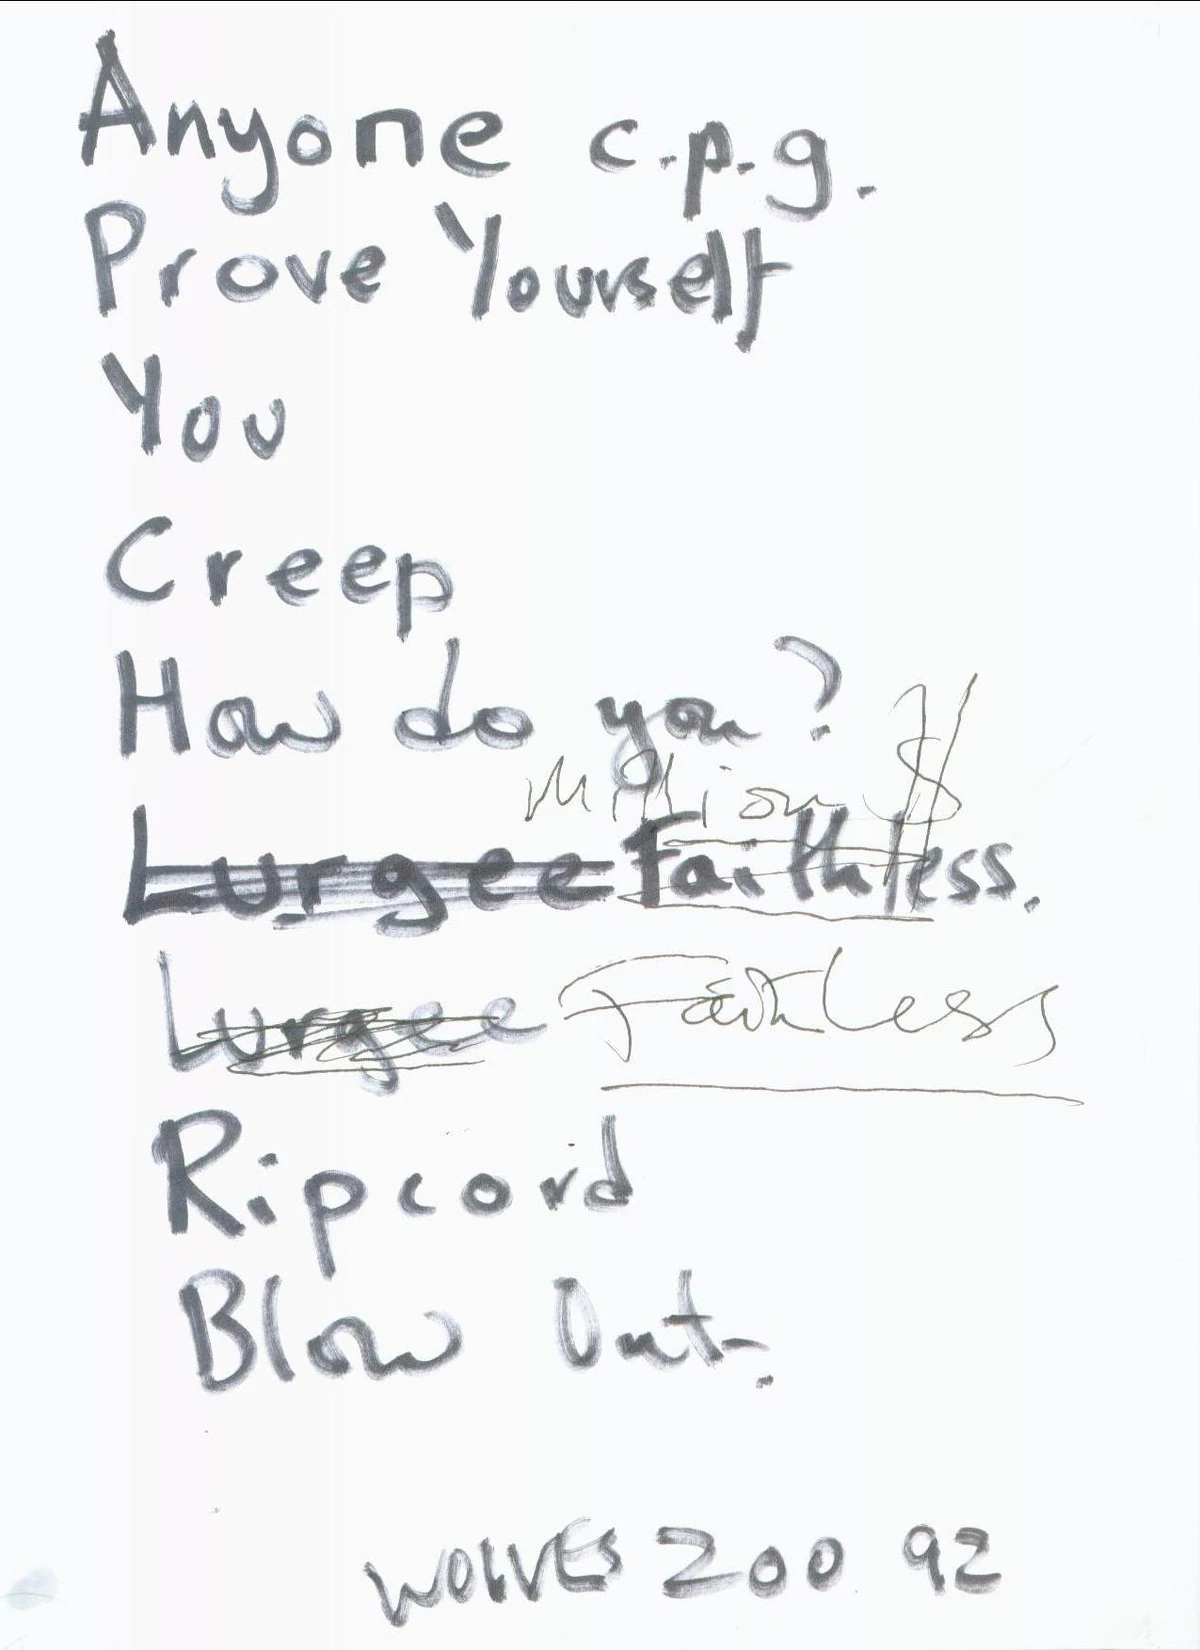 Anyone c.p.g.
Prove Yourself
You
Creep
How do you?
Million $
Lurgee Faithless.
Lurgee Faithless
Ripcord
Blow Out.
WOLVES ZOO 92